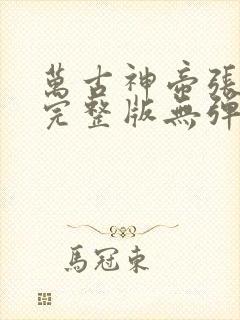 萬古神帝張
完整版無彈
馬冠東